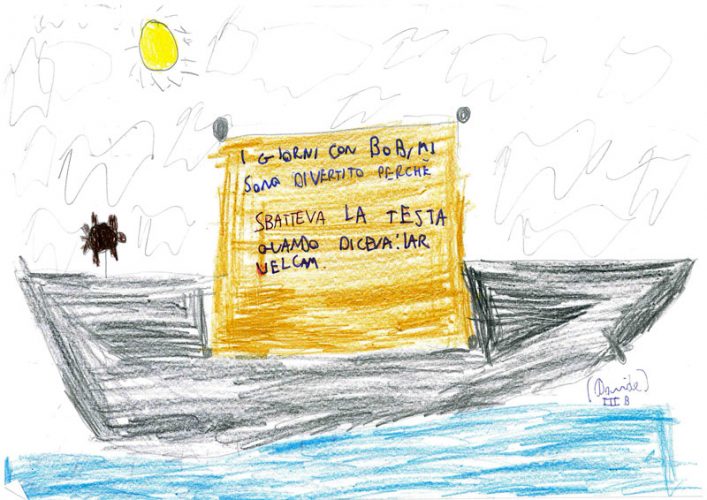 I GIORNI CON BOB, MI
SONO DIVERTITO PERCHÈ
SBATTEVA LA TESTA
QUANDO DICEVA: IAR
UELCAM.
(Davide)
III B